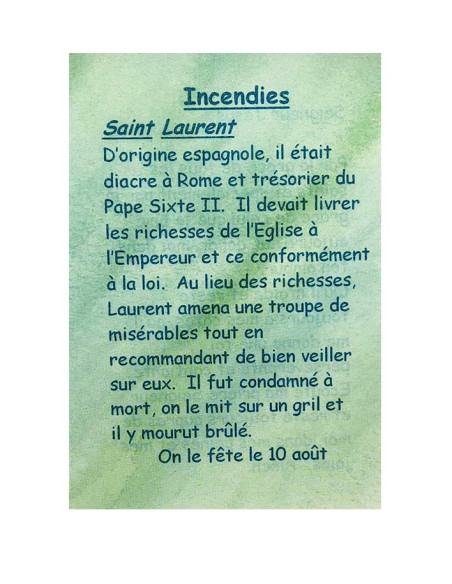 Incendies
Saint Laurent
D'origine espagnole, il était
diacre à Rome et trésorier du
Pape Sixte II.  Il devait livrer
les richesses de l'Eglise à
l'Empereur et ce conformément
à la loi.  Au lieu des richesses,
Laurent amena une troupe de
misérables tout en
recommandant de bien veiller
sur eux.  Il fut condamné à
mort, on le mit sur un gril et
il y mourut brûlé.
On le fête le 10 août